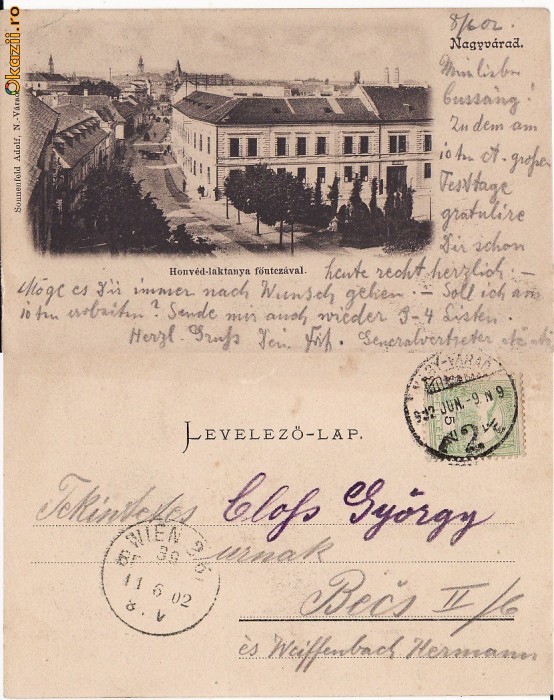 Okazii.ro
8/6 02.
Nagyvárad.
Mein lieber
Zu dem am
10ten ct. großen
Festtage
gratulire
Dir schon
heute recht herzlich. –
Sonnenfeld Adolf, N.-Várad.
Honvéd-laktanya főutczával.
Möge es Dir immer nach Wunsch gehen. – Soll ich am
10ten arbeiten? Sende mir auch wieder 3-4 Listen.
Herzl. Gruß Dein Generalvertreter
NAGY-VÁRAD
LEVELEZŐ-LAP.
Tekintetes Closs György
urnak
WIEN
11 6 02
Bécs II/6
és Weiffenbach Hermann